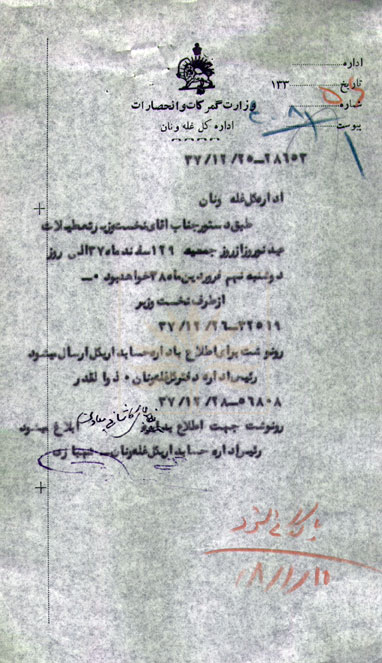 اداره
تاریخ ۱۳۳
شماره
پیوست
وزارت گمرکات و انحصارات
اداره کل غله و نان
۲۸۶۵۳ــ۳۷/۱۲/۲۵
اداره کل غله ونان
طبق دستور جناب آقای نخست وزیر تعطیلات
عید نوروز از روز جمعه ۲۹ اسفند ماه ۳۷ الی روز
دوشنبه نهم فروردین ماه ۳۸ خواهد بود ۰ــ
از طرف نخست وزیر
۳۲۵۱۹ــ۳۷/۱۲/۲۶
رونوشت برای اطلاع باداره حسابداریکل ارسال میشود
رئیس اداره دفتر کل غله ونان ۰ ذوالقدر
۵۶۸۰۸ــ۳۷/۱۲/۲۸
رونوشت جهت اطلاع ابلاغ میشود
رئیس اداره حسابداریکل غله ونان ــ
بایگانی شود